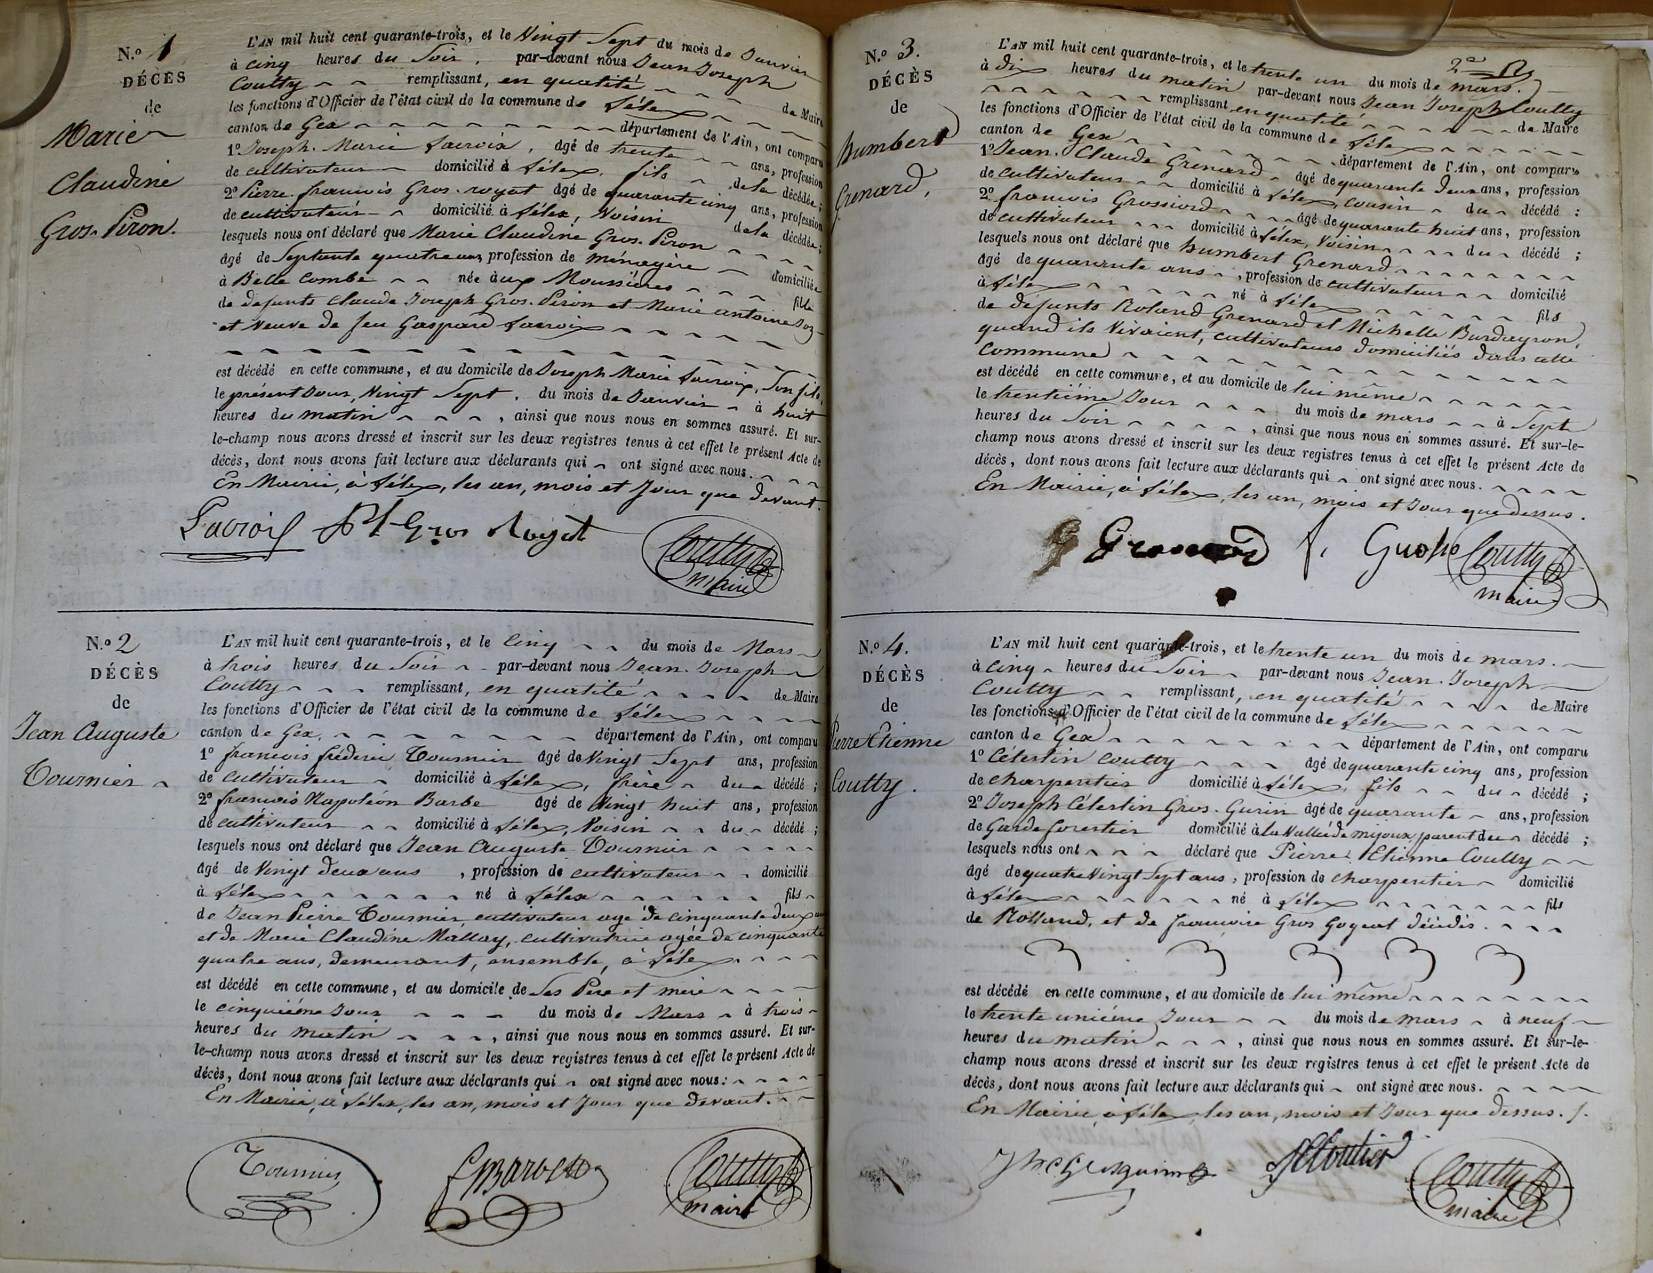 N.º 1
DÉCÈS
de
Marie
Claudine
Gros-Piron.
L'AN mil huit cent quarante-trois, et le Vingt Sept du mois de Janvier
à cinq heures du Soir, par-devant nous Jean Joseph
Coutty remplissant, en qualité de Maire
les fonctions d'Officier de l'état civil de la commune de Lélex
canton de Gex département de l'Ain, ont comparu
1º Joseph-Marie Lacroix, âgé de trente ans, profession
de cultivateur domicilié à Lélex, fils de la décédée;
2º Pierre-françois Gros-royat âgé de quarante cinq ans, profession
de cultivateur domicilié à Lélex, Voisin de la décédée;
lesquels nous ont déclaré que Marie Claudine Gros-Piron
âgé de Septante quatre ans, profession de ménagère domiciliée
à Belle Combe née aux Moussières fille
de défunts Claude Joseph Gros-Piron et Marie antoine
et Veuve de feu Gaspard Lacroix
est décédé en cette commune, et au domicile de Joseph Marie Lacroix, Son fils,
le présent Jour, Vingt Sept, du mois de Janvier à huit
heures du matin, ainsi que nous nous en sommes assuré. Et sur-
le-champ nous avons dressé et inscrit sur les deux registres tenus à cet effet le présent Acte de
décès, dont nous avons fait lecture aux déclarants qui ont signé avec nous.
En Mairie, à Lélex, les an, mois et Jour que devant.
Lacroix Gros Royat Coutty
maire
N.º 2
DÉCÈS
de
Jean Auguste
Tournier
L'AN mil huit cent quarante-trois, et le Cinq du mois de Mars
à trois heures du Soir par-devant nous Jean-Joseph
Coutty remplissant, en qualité de Maire
les fonctions d'Officier de l'état civil de la commune de Lélex
canton de Gex. département de l'Ain, ont comparu
1º françois frédéric Tournier âgé de Vingt Sept ans, profession
de cultivateur domicilié à Lélex, frère du décédé;
2º françois Napoléon Barbe âgé de Vingt huit ans, profession
de cultivateur domicilié à Lélex, Voisin du décédé;
lesquels nous ont déclaré que Jean Auguste Tournier
âgé de Vingt deux ans, profession de cultivateur domicilié
à Lélex né à Lélex fils
de Jean Pierre Tournier cultivateur agé de cinquante deux ans
et de Marie Claudine Mallay, cultivatrice agée de cinquante
quatre ans, demeurant, ensemble, à Lélex
est décédé en cette commune, et au domicile de Ses Pere et mère
le cinquième Jour du mois de Mars à trois
heures du matin, ainsi que nous nous en sommes assuré. Et sur-
le-champ nous avons dressé et inscrit sur les deux registres tenus à cet effet le présent Acte de
décès, dont nous avons fait lecture aux déclarants qui ont signé avec nous:
En Mairie, à Lélex, les an, mois et Jour que devant.
Tournier Barbe Coutty
maire
N.º 3.
DÉCÈS
de
humbert
Grenard,
L'AN mil huit cent quarante-trois, et le trente un du mois de mars.
à Dix heures du matin par-devant nous Jean Joseph Coutty
remplissant, en qualité de Maire
les fonctions d'Officier de l'état civil de la commune de Lélex
canton de Gex département de l'Ain, ont comparu
1º Jean-Claude Grenard âgé de quarante deux ans, profession
de cultivateur domicilié à Lélex, cousin du décédé;
2º françois Grossiord âgé de quarante huit ans, profession
de cultivateur domicilié à Lélex, Voisin du décédé;
lesquels nous ont déclaré que humbert Grenard
âgé de quarante ans, profession de cultivateur domicilié
à Lélex né à Lélex fils
de défunts Roland Grenard et Michelle Burdayron,
quand ils Vivaient, cultivateurs domiciliés dans cette
Commune
est décédé en cette commune, et au domicile de lui même
le trentième Jour du mois de mars à Sept
heures du Soir, ainsi que nous nous en sommes assuré. Et sur-le-
champ nous avons dressé et inscrit sur les deux registres tenus à cet effet le présent Acte de
décès, dont nous avons fait lecture aux déclarants qui ont signé avec nous.
En Mairie, à Lélex, les an, mois et Jour que dessus.
Grenard Coutty
maire
N.º 4.
DÉCÈS
de
Pierre Etienne
Coutty.
L'AN mil huit cent quarante-trois, et le trente un du mois de mars.
à cinq heures du Soir par-devant nous Jean-Joseph
Coutty remplissant, en qualité de Maire
les fonctions d'Officier de l'état civil de la commune de Lélex
canton de Gex département de l'Ain, ont comparu
1º Célestin Coutty âgé de quarante cinq ans, profession
de charpentier domicilié à Lélex, fils du décédé;
2º Joseph Célestin Gros-Gurin âgé de quarante ans, profession
de Garde forestier domicilié à la Vallée de mijoux, parent du décédé;
lesquels nous ont déclaré que Pierre Etienne Coutty
âgé de quatre Vingt Sept ans, profession de charpentier domicilié
à Lélex né à Lélex fils
de Rolland, et de françoise Gros Goyeat décédés.
est décédé en cette commune, et au domicile de lui même
le trente unième Jour du mois de mars à neuf
heures du matin, ainsi que nous nous en sommes assuré. Et sur-le-
champ nous avons dressé et inscrit sur les deux registres tenus à cet effet le présent Acte de
décès, dont nous avons fait lecture aux déclarants qui ont signé avec nous.
En Mairie, à Lélex, les an, mois et Jour que dessus.
Coutty
maire